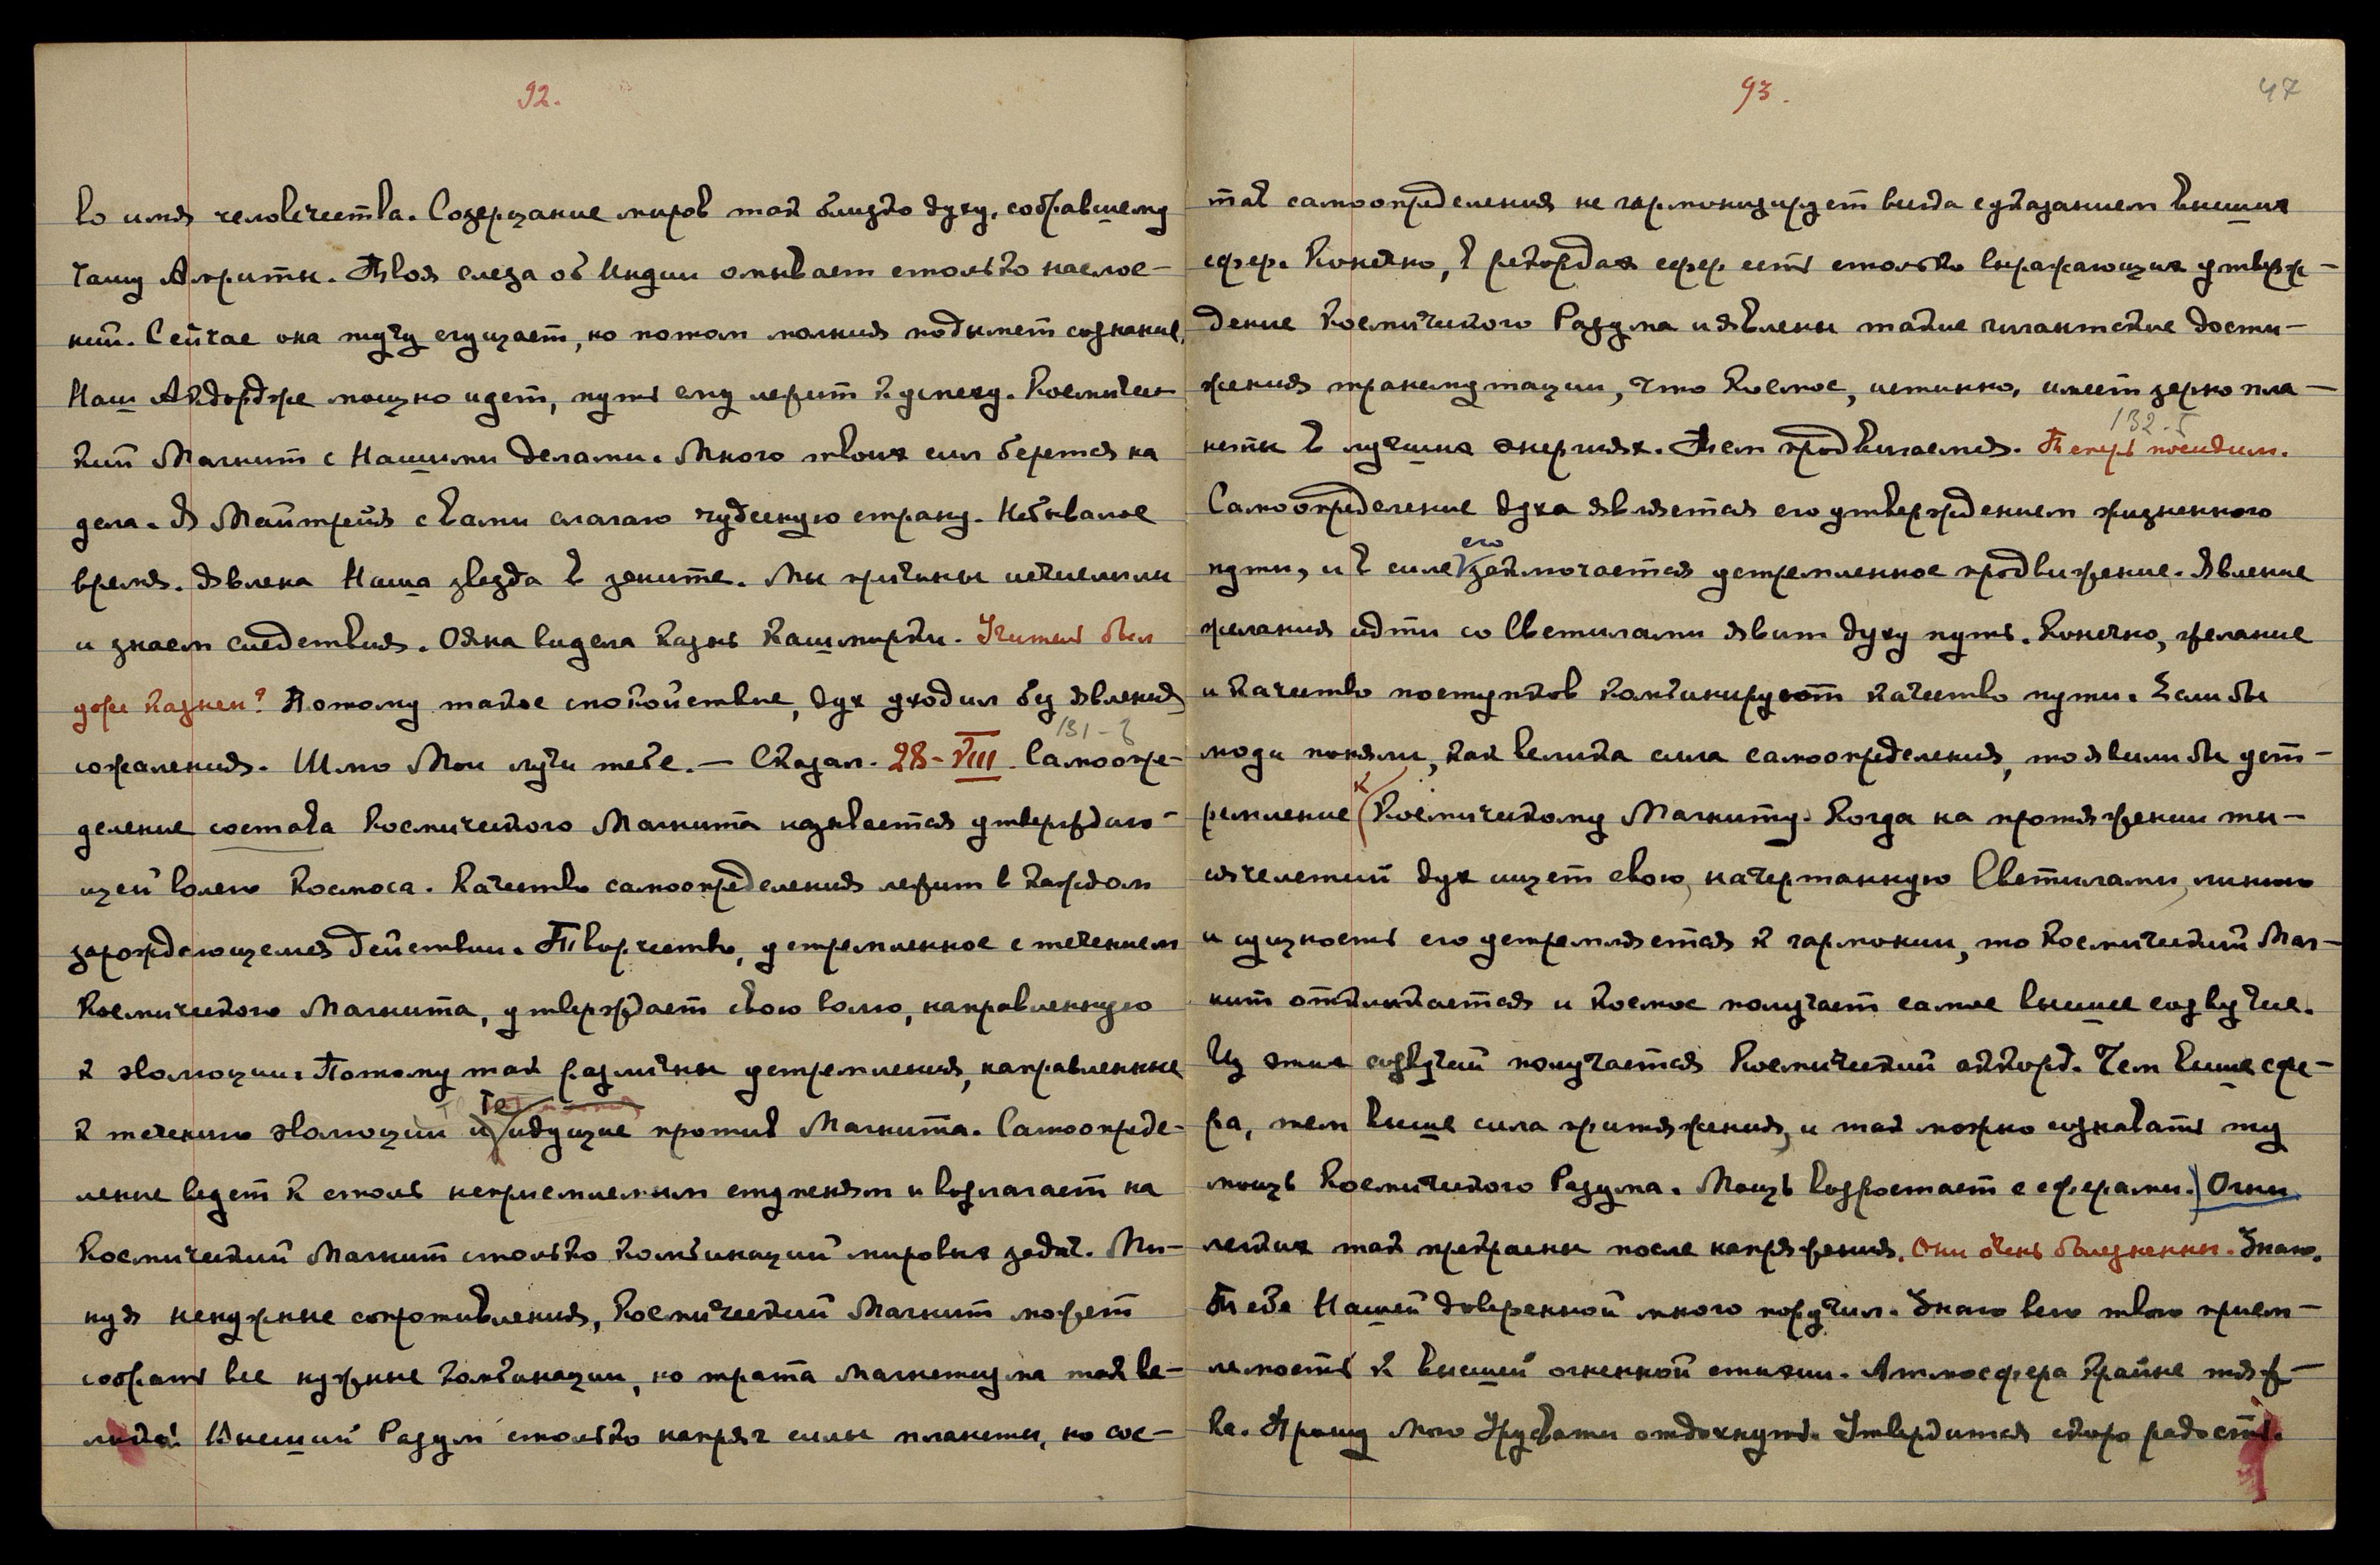 92.
во имя человечества. Созерцание миров так близко духу, собравшему
чашу Амриты. Твоя слеза об Индии омывает столько наслое-
ний. Сейчас она тучу сгущает, но потом молния подымет сознание.
Наш Акдордже мощно идет, путь ему лежит к успеху. Космичес-
кий Магнит с Нашими делами. Много твоих сил берется на
дела. Я Майтрейя с вами слагаю чудесную страну. Небывалое
время. Явлена Наша звезда в зените. Мы причины исчислили
и знаем следствия. Ояна видела казнь Кашмирки. Учитель был
уже казнен? Потому такое спокойствие, дух уходил без явления
131-б
сожаления. Шлю Мои лучи тебе. — Сказал. 28-VIII. Самоопре-
деление состава Космического Магнита называется утверждаю-
щей волею Космоса. Качество самоопределения лежит в каждом
зарождающемся действии. Творчество, устремленное с течением
Космического Магнита, утверждает свою волю, направленную
к эволюции. Потому так различны устремления, направленные
те
к течению эволюции и идущие против Магнита. Самоопреде-
ление ведет к столь неприемлемым ступеням и возлагает на
Космический Магнит столько комбинаций мировых задач. Ми-
нуя ненужные сопротивления, Космический Магнит может
собрать все нужные комбинации, но трата магнетизма так ве-
лика! Высший Разум столько напряг силы планеты, но сос-
93.
47
тав самоопределения не гармонизирует всегда с указанием высших
сфер. Конечно, в рекордах сфер есть столько выражающих утверж-
дение Космического Разума и явлены такие гигантские дости-
жения трансмутации, что Космос, истинно, имеет зерно пла-
132-б
неты в лучших энергиях. Тем продвигаемся. Теперь посидим.
Самоопределение духа является его утверждением жизненного
его
пути, и в силе заключается устремленное продвижение. Явление
желания идти со Светилами явит духу путь. Конечно, желание
и качество поступков комбинируют качество пути. Если бы
люди поняли, как велика сила самоопределения, то явили бы уст-
к
ремление Космическому Магниту. Когда на протяжении ты-
сячелетий дух ищет свою, начертанную Светилами, линию
и сущность его устремляется к гармонии, то Космический Маг-
нит откликается и Космос получает самое высшее созвучие.
Из этих созвучий получается Космический аккорд. Чем выше сфе-
ра, тем выше сила притяжения, и так можно сознавать ту
мощь Космического Разума. Мощь возрастает с сферами. Огни
легких так прекрасны после напряжения. Они очень болезненны. Знаю.
Тебе Нашей доверенной много поручил. Знаю всю твою прием-
лемость к высшей огненной стихии. Атмосфера крайне тяж-
ка. Прошу мою Урусвати отдохнуть. Утвердится скоро радость.